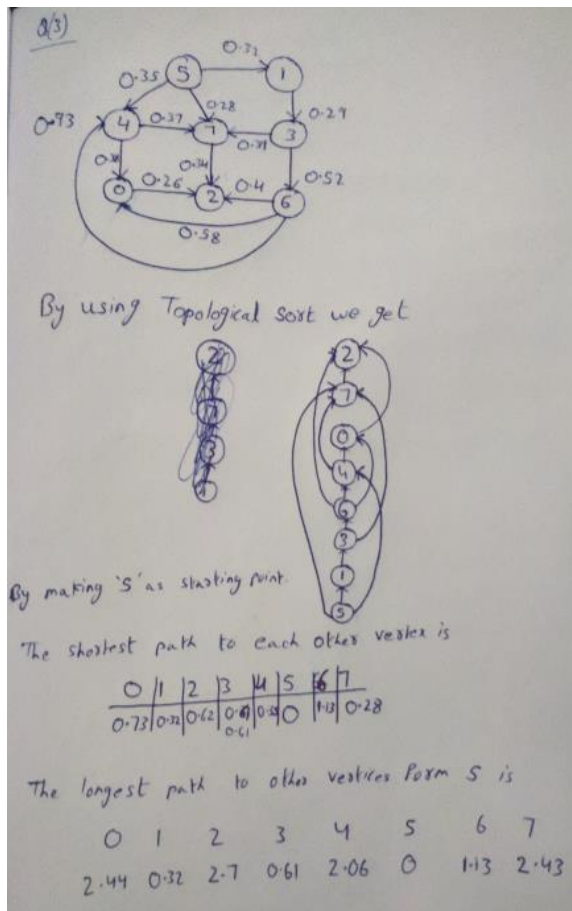 Q(3)
0.32
5 1
0.35
0.28 0.29
0.93 4 0.37 7 0.39 3
0.38 0.34 0.52
0 0.26 2 0.4 6
0.58
By using Topological sort we get
2
7
0
4
6
3
1
5
By making '5' as starting point.
The shortest path to each other vertex is
0 1 2 3 4 5 6 7
0.73 0.32 0.62 0.61 0.35 0 1.13 0.28
The longest path to other vertices form 5 is
0 1 2 3 4 5 6 7
2.44 0.32 2.7 0.61 2.06 0 1.13 2.43